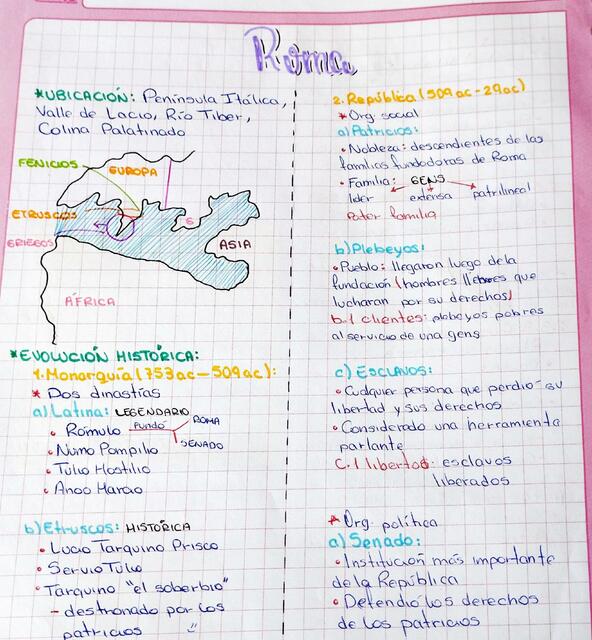 Roma
*UBICACIÓN: Península Itálica,
Valle de Lacio, Río Tiber,
Colina Palatinado
FENICIOS
EUROPA
ETRUSCOS
G
GRIEGOS
ASIA
ÁFRICA
*EVOLUCIÓN HISTÓRICA:
1. Monarquía (753 ac - 509 ac):
* Dos dinastías
a) Latina: LEGENDARIO
• Rómulo Fundó ROMA
SENADO
• Numo Pompilio
• Tulio Hostilio
• Anco Marcio
b) Etruscos: HISTÓRICA
• Lucio Tarquino Prisco
• Servio Tulio
• Tarquino "el soberbio"
- destronado por los
patricios
2. República (509 ac - 29 ac)
* Org social
a) Patricios:
• Nobleza: descendientes de las
familias fundadoras de Roma
• Familia: GENS
líder extensa patrilineal
Pater familia
b) Plebeyos:
• Pueblo: llegaron luego de la
fundación (hombres libres que
lucharan por su derechos)
b.1 clientes: plebeyos pobres
al servicio de una gens
c) ESCLAVOS:
• Cualquier persona que perdio su
libertad y sus derechos
• Considerado una herramienta
parlante
C.1 libertos: esclavos
liberados
* Org. política
a) Senado:
• Institución más importante
de la República
• Defendio los derechos
de los patricios